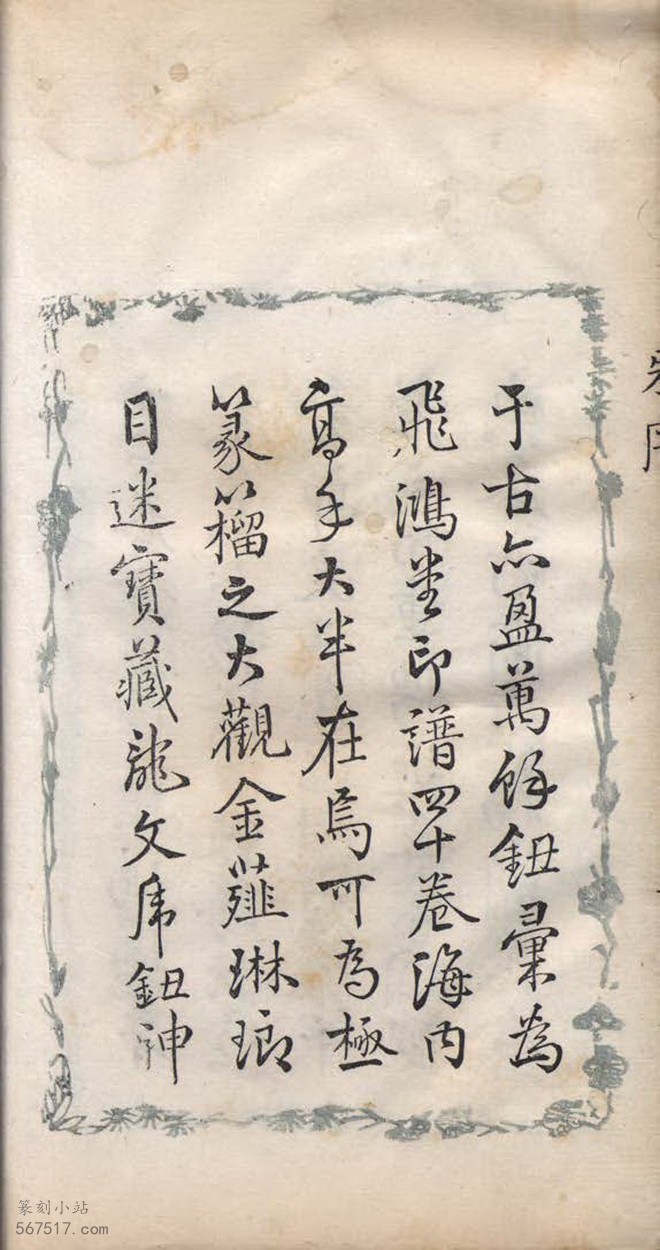 于古亦盈萬餘鈕彙為
飛鴻堂印譜四十卷海内
高手大半在焉可為極
篆籀之大觀金薤琳瑯
目迷寶藏龍文虎鈕神
篆刻小站
567517.com